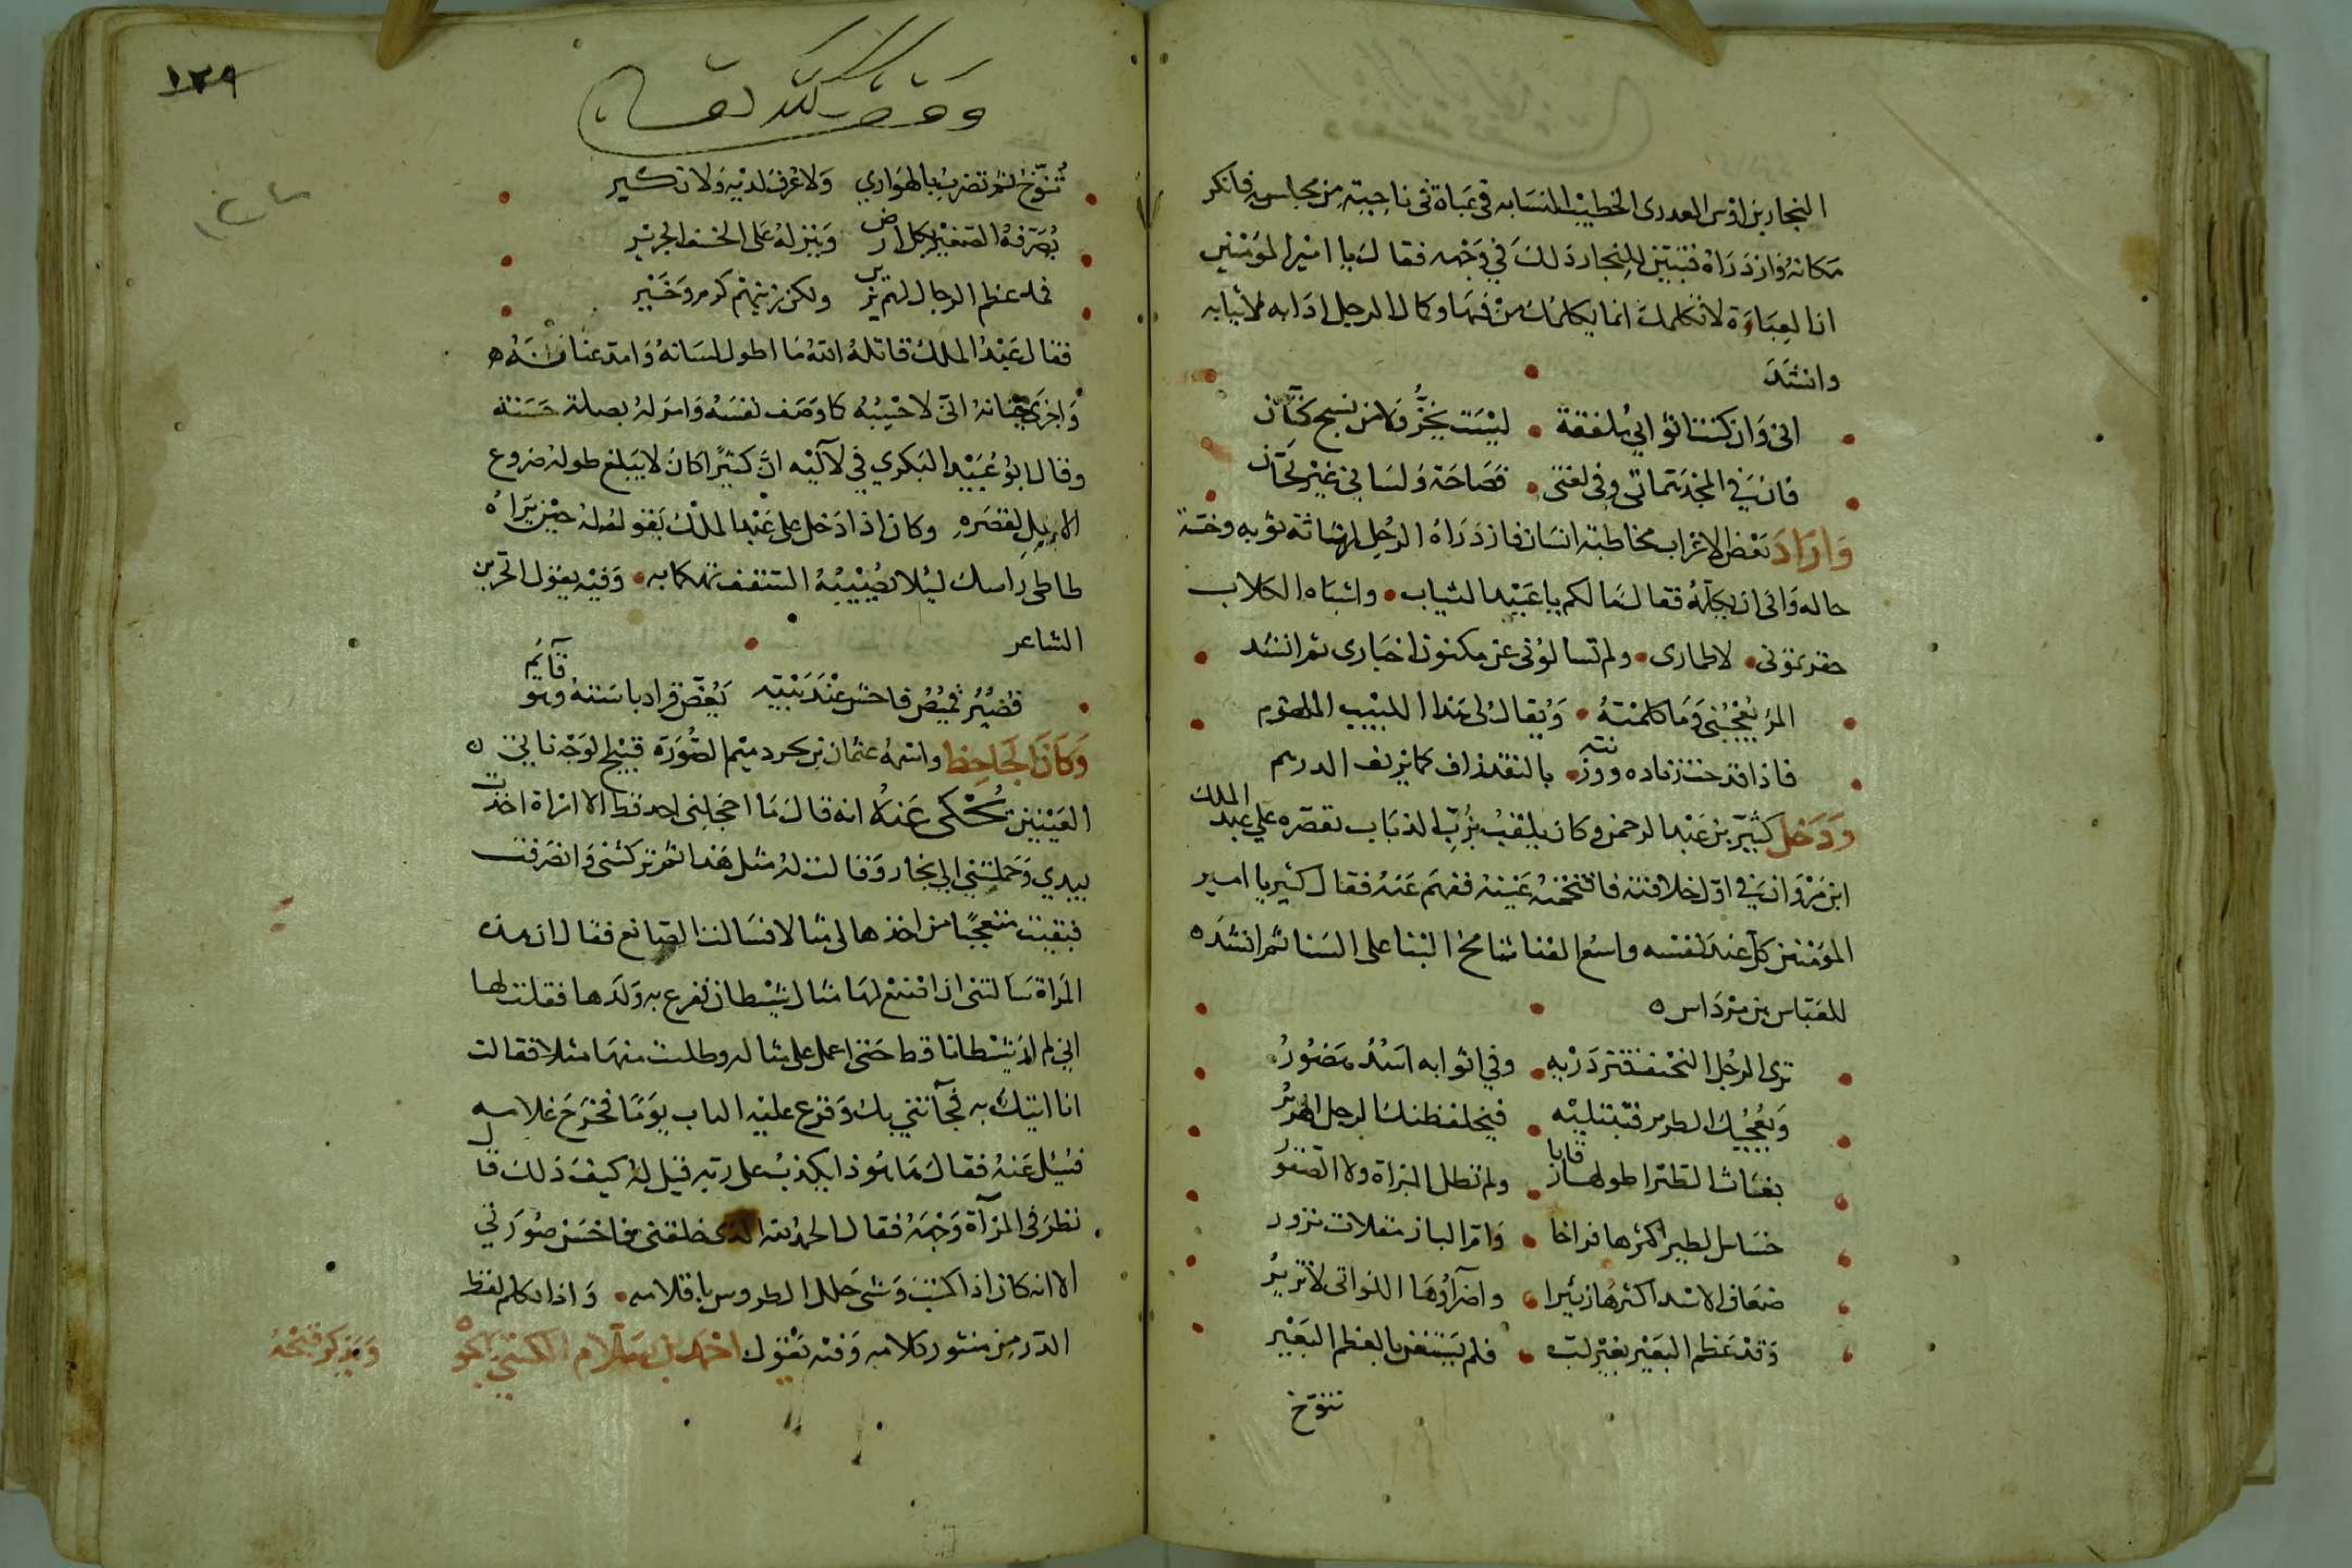 النجار بن اوس العدوى الخطيب النسابه فى عباة فى ناحية من مجلسه فانكر
مكانه وازدراه فتبين للنجار ذلك في وجهه فقال يا امير المومنين
ان العباءة لا تكلمك انما يكلمك من فيها وكان الرجل اذا به لاثيابه
وانشد
انى وان كنت اثوابي ملفقة ليست بخز ولا من نسج كتان
فان في المجد همماتى وفى لغتى فصاحة ولساني غير لحان
واراد بعض الاعراب مخاطبة انسان فازدراه الرجل لرثاثة ثوبه وخسة
حاله وابى ان يكلمه فقال مالكم يا عبيد الثياب واشباه الكلاب
حقرتمونى لاطمارى ولم تسالونى عن مكنون اخبارى ثم انشد
المرء يعجبنى وما كلمته ويقال لى هذا اللبيب اللهذم
فاذا قدحت زناده ووزنته بالنقد زاف كما يزيف الدرهم
ودخل كثير بن عبد الرحمن وكان يلقب بزب الذباب لقصره علي عبد الملك
ابن مروان في اول خلافته فاقتحمته عينه ففهم عنه فقال كثير يا امير
المؤمنين كل عند نفسه واسع الفنا شامخ البنا على السنا ثم انشده
للعباس بن مرداس
ترى الرجل النحيف فتزدريه وفي اثوابه اسد هصور
ويعجبك الطرير فتبتليه فيخلف ظنك الرجل الطرير
بغاث الطير اطولها رقابا ولم تطل البزاة ولا الصقور
خساس الطير اكثرها فراخا وام الباز مقلات نزور
ضعاف الاسد اكثرها زئيرا واضراؤها اللواتى لا تزير
وقد عظم البعير بغير لب فلم يستغن بالعظم البعير
تنوخ
١٢٩
وقف لله تعالى
تنوخ ثم تضرب بالهراوي ولا عرف لديه ولا نكير
يصرفه الصغير بكل ارض وينزله على الخسف الجرير
فما عظم الرجال لهم بزين ولكن زينهم كرم وخير
فقال عبد الملك قاتله الله ما اطول لسانه وامد عنانه
واجرى جنانه انى لاحسبه كما وصف نفسه وامر له بصلة حسنة
وقال ابو عبيد البكري في لآليه ان كثيرا كان لا يبلغ طوله ضروع
الابل لقصره وكان اذا دخل على عبد الملك يقول له حين يراه
طاطى راسك ليلا يصيبه السقف تهكما به وفيه يقول الحزين
الشاعر
قصير قميص فاحش عند بيته يعض قراد باسته وهو قائم
وكان الجاحظ واسمه عثمان بن بحر دميم الصورة قبيح الوجه ناتئ
العينين حكى عنه انه قال ما اخجلنى احد قط الا امراة اخذت
بيدي وحملتني الى نجار وقالت له مثل هذا ثم تركتنى وانصرفت
فبقيت متعجبا من اخذها لى مثالا فسالت الصانع فقال ان هذه
المراة سالتنى ان اصنع لها مثال شيطان تفزع به ولدها فقلت لها
اني لم ار شيطانا قط حتى اعمل على مثاله وطلبت منها مثلا فقالت
انا اتيك به فجآتني بك وقرع عليه الباب يوما فخرج غلامه
فسئل عنه فقال ها هو ذا يكذب على ربه قيل له كيف ذلك قال
نظر فى المرآة وجهه فقال الحمد لله الذى خلقنى فاحسن صورتي
الا انه كان اذا كتب وشى حلل الطروس باقلامه واذا تكلم لفظ
الدر من منثور كلامه وفيه يقول احمد بن سلام
ويذكر قبحه